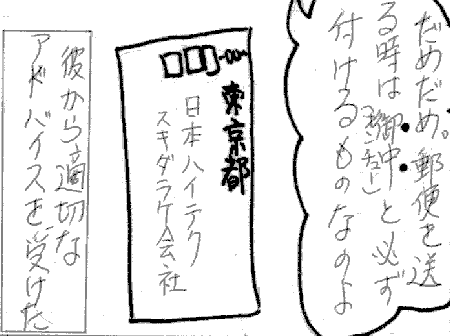 だめだめ。郵便を送
る時は御中と必ず
付けるものなのよ
東京都
日本ハイテク
スキダラケ会社
彼から適切な
アドバイスを受けた